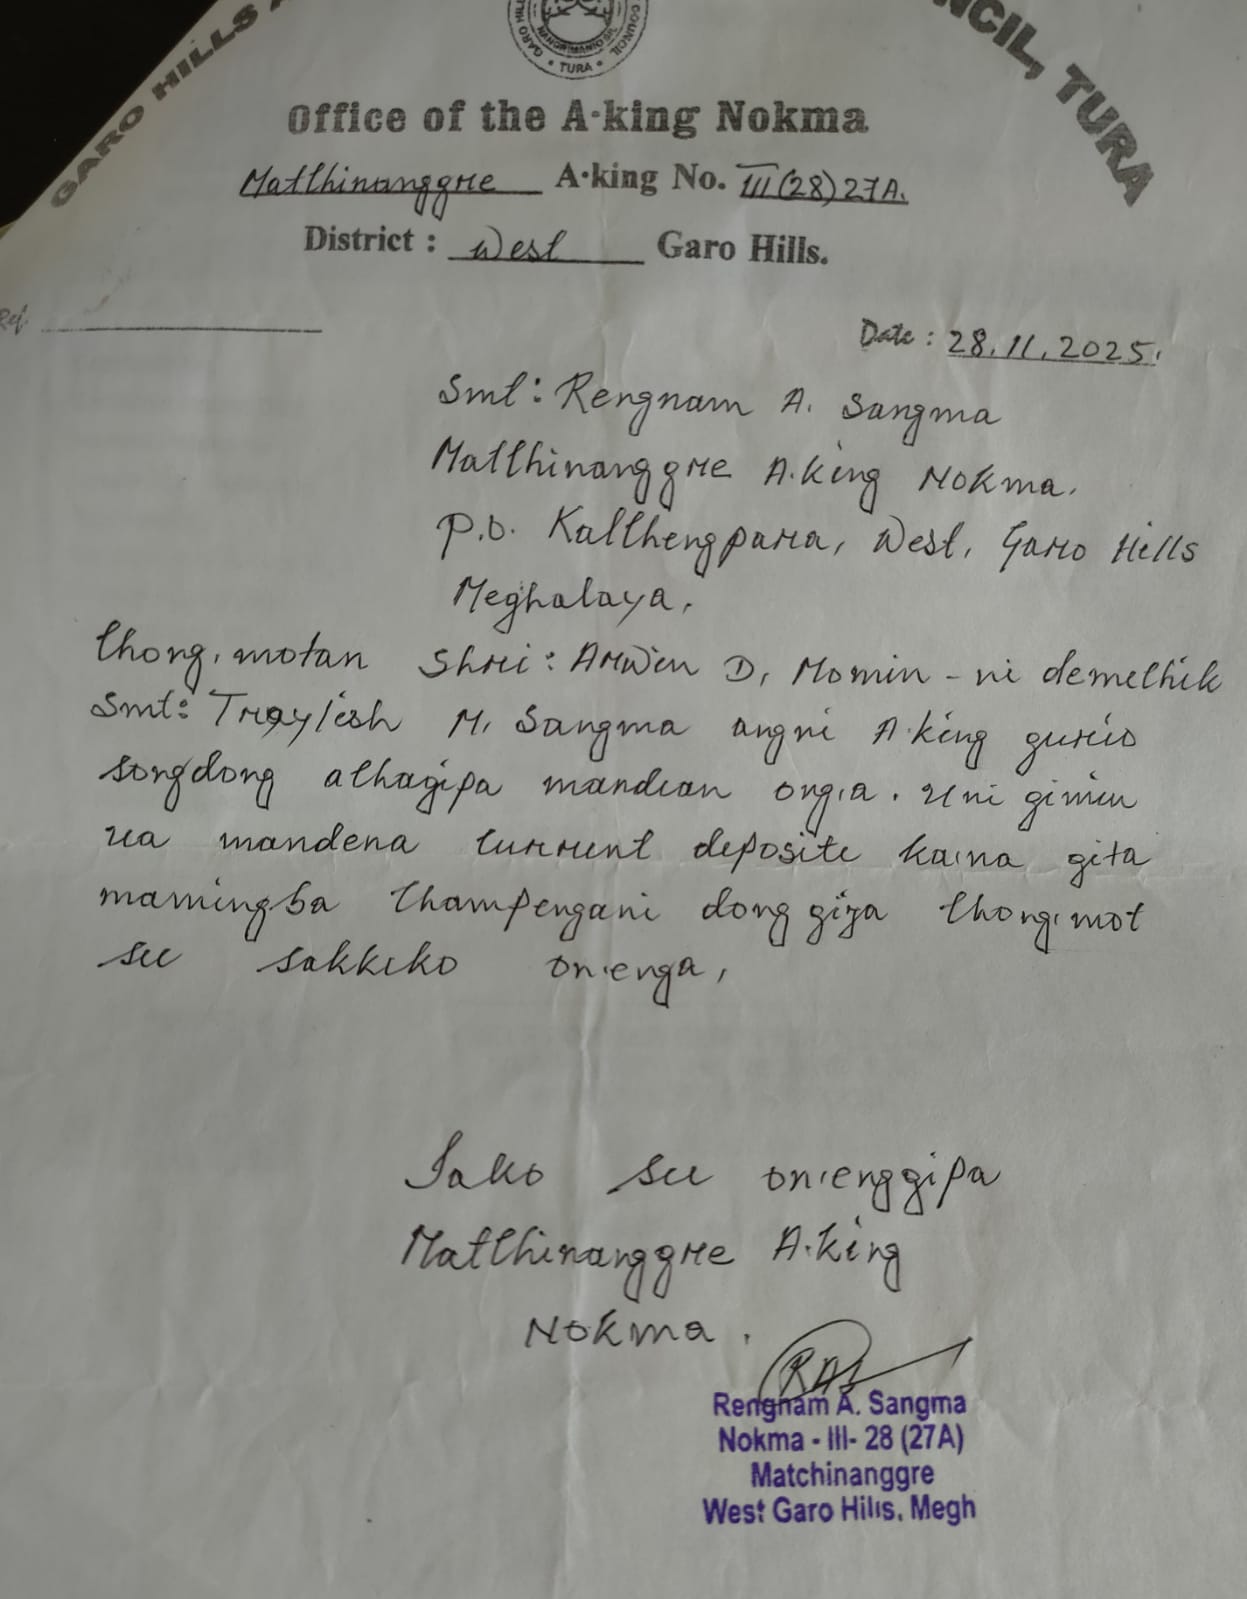 GARO HILLS
NCIL, TURA
GARO HILL
COUNCIL
TURA
Office of the A·king Nokma
Matchinanggre A·king No. III(28)27A.
District : West Garo Hills.
Ref.
Date : 28.11.2025.
Smt: Rengnam A. Sangma
Matchinanggre A.king Nokma.
P.O. Katchengpara, West, Garo Hills
Meghalaya.
Chong.motan Shri: Arwin D. Momin - ni demechik
Smt: M. Sangma angni A·king gurio
songdong achagipa mandian ong.a. Uni gimin
ua mandena current deposite ka·na gita
mamingba champengani donggija chong·mot
see sakkiko on·enga,
Iako see on·enggipa
Matchinanggre A·king
Nokma.
RAS
Rengnam A. Sangma
Nokma - III- 28 (27A)
Matchinanggre
West Garo Hills, Megh